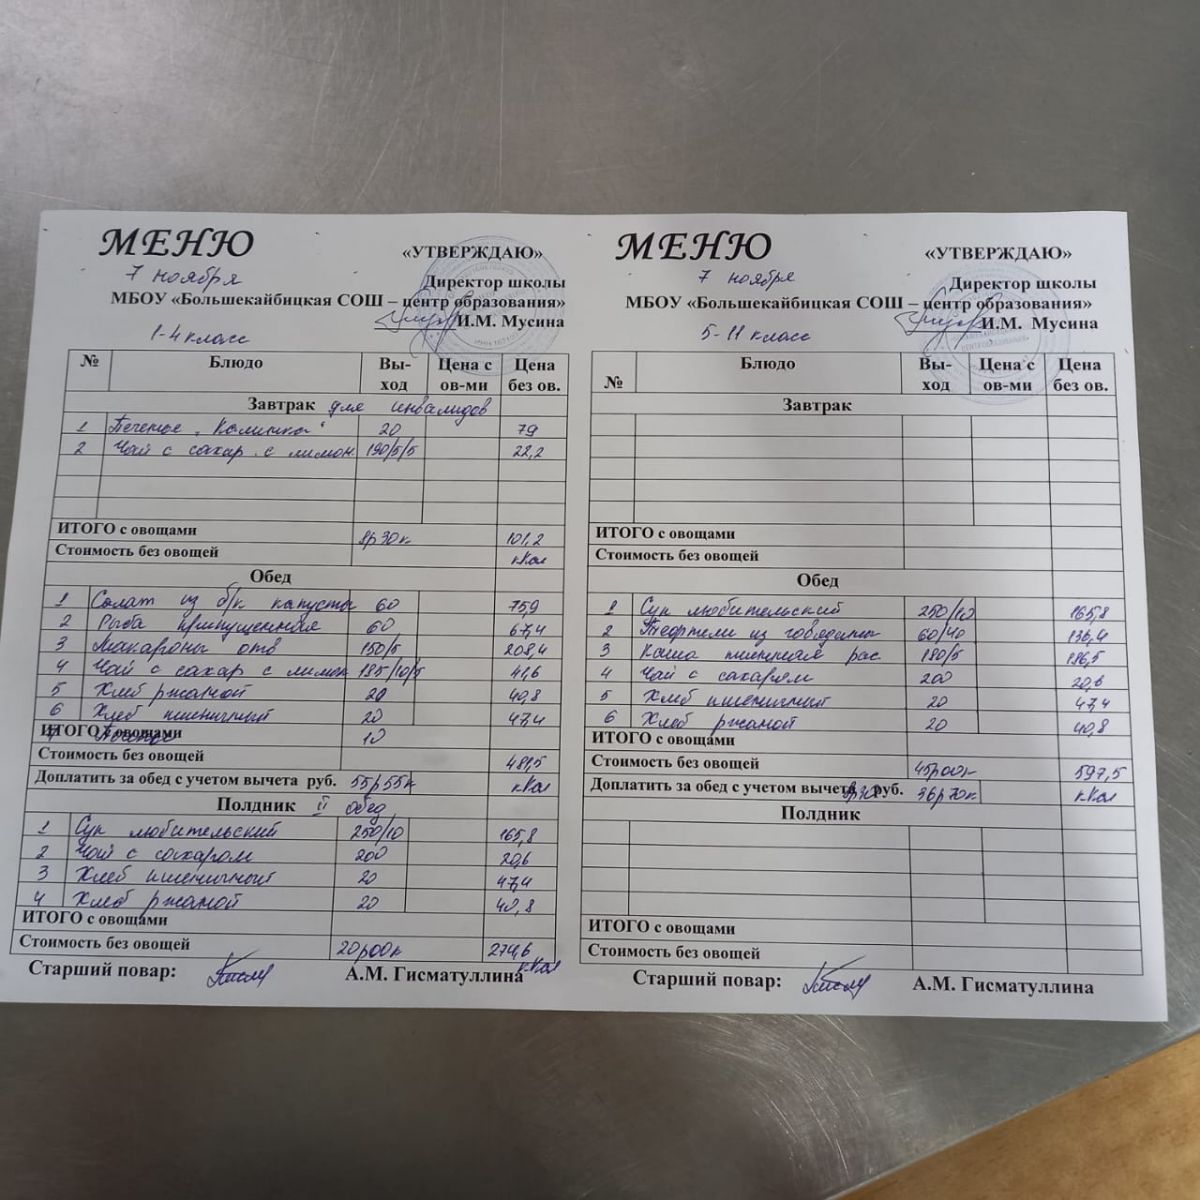 МЕНЮ
«УТВЕРЖДАЮ»
7 ноября
Директор школы
МБОУ «Большекайбицкая СОШ – центр образования»
И.М. Мусина
1-4 класс
№ Блюдо Вы-ход Цена с ов-ми Цена без ов.
Завтрак для инвалидов
1 Печенье „Калинка“ 20 79
2 Чай с сахар с лимон 190/5/5 22,2
ИТОГО с овощами 8р30к 101,2
Стоимость без овощей кКал
Обед
1 Салат из б/к капусты 60 75,9
2 Рыба припущенная 60 67,4
3 Макароны отв 150/5 208,4
4 Чай с сахар с лимон 185/10/5 41,6
5 Хлеб ржаной 20 40,8
6 Хлеб пшеничный 20 47,4
ИТОГО с овощами 10
Стоимость без овощей 481,5
Доплатить за обед с учетом вычета руб. 55р55к кКал
Полдник II обед
1 Суп любительский 250/10 165,8
2 Чай с сахаром 200 20,6
3 Хлеб пшеничный 20 47,4
4 Хлеб ржаной 20 40,8
ИТОГО с овощами
Стоимость без овощей 20р00к 274,6
кКал
Старший повар: А.М. Гисматуллина
МЕНЮ
«УТВЕРЖДАЮ»
7 ноября
Директор школы
МБОУ «Большекайбицкая СОШ – центр образования»
И.М. Мусина
5-11 класс
№ Блюдо Вы-ход Цена с ов-ми Цена без ов.
Завтрак
ИТОГО с овощами
Стоимость без овощей
Обед
1 Суп любительский 250/10 165,8
2 Тефтели из говядины 60/40 136,4
3 Каша пшенная рас 180/5 186,5
4 Чай с сахаром 200 20,6
5 Хлеб пшеничный 20 47,4
6 Хлеб ржаной 20 40,8
ИТОГО с овощами
Стоимость без овощей 45р00к 597,5
Доплатить за обед с учетом вычета руб. 36р70к кКал
Полдник
ИТОГО с овощами
Стоимость без овощей
Старший повар: А.М. Гисматуллина